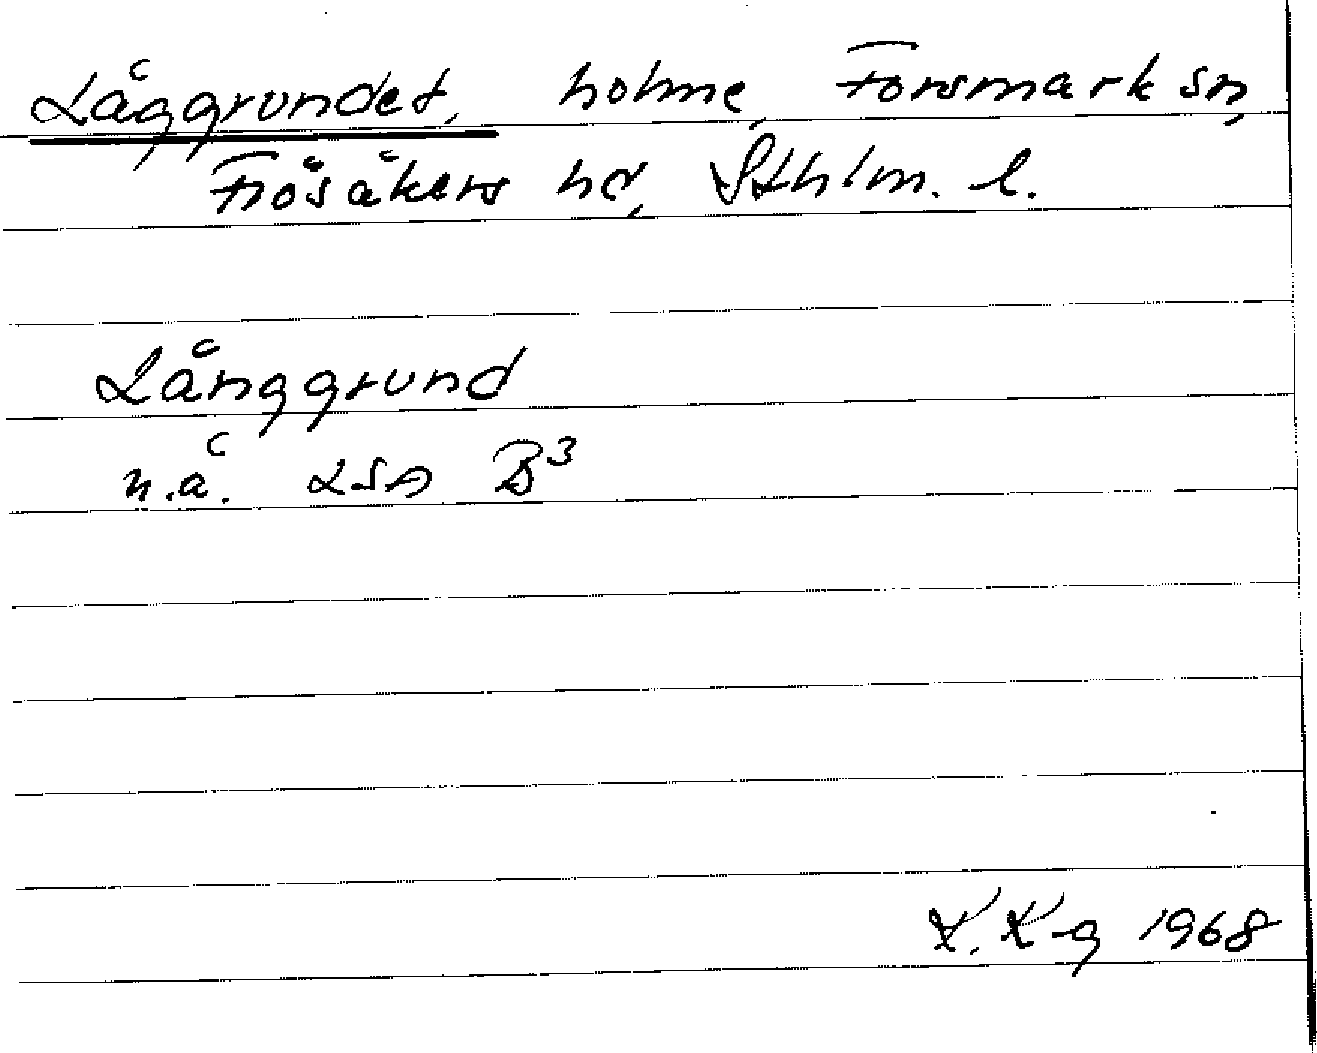 Låggrundet, holme, Forsmark sn,
Frösåkers hd, Sthlm. l.
Långgrund
n.å. LSA B³
K. K-g 1968